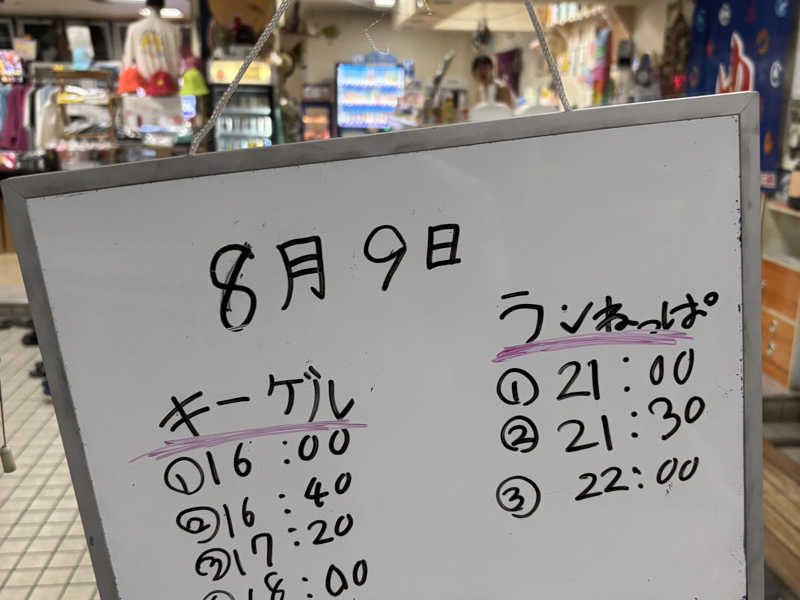 8月9日
キーゲル
①16:00
②16:40
③17:20
18:00
ランねっぱ
①21:00
②21:30
③22:00